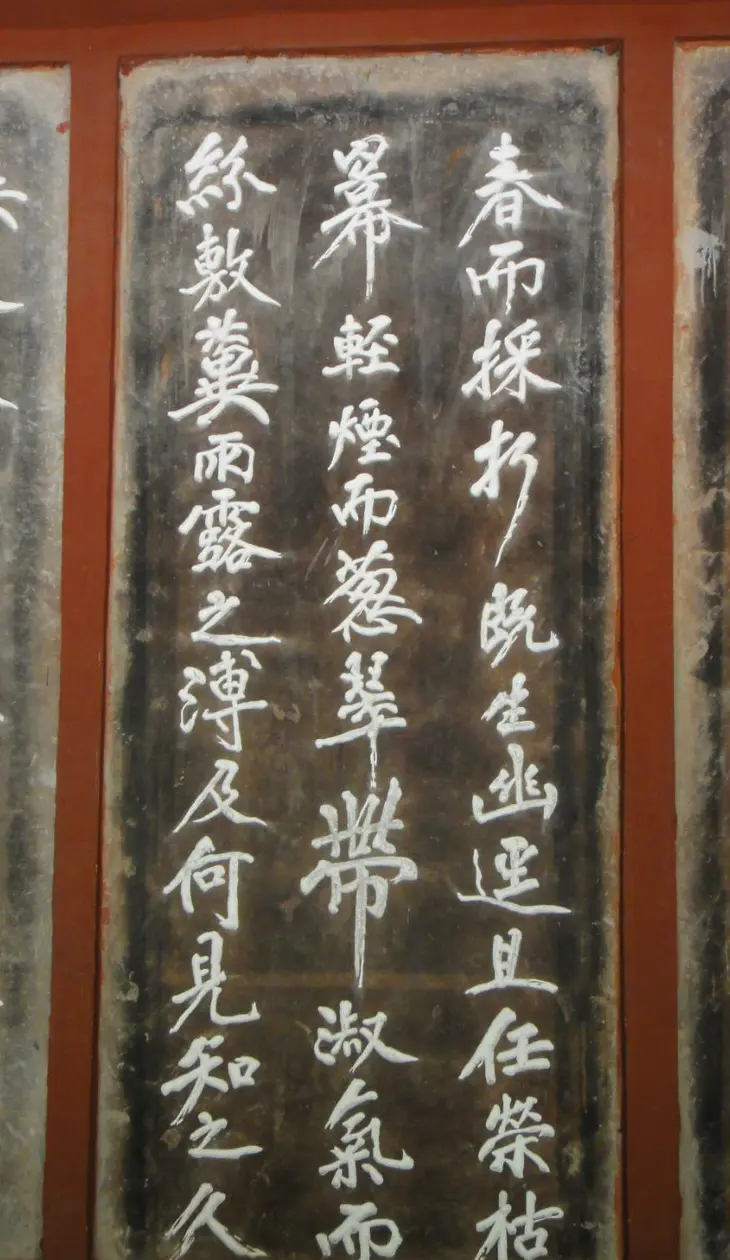 春而採折既生幽逕且任榮枯
羃輕煙而葱翠帶淑氣而
絲敷冀雨露之溥及何見知之久